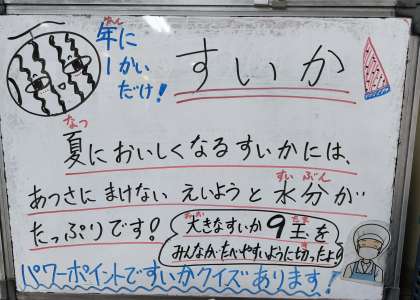 年に
ねん
1かい
だけ!
すいか
なつ
夏においしくなるすいかには、
あつさに まけない えいようと 水分が
すい ぶん
たっぷりです!
大きなすいか9玉を
おお たま
みんなが たべやすいように切ったよ
き
パワーポイントですいかクイズあります!